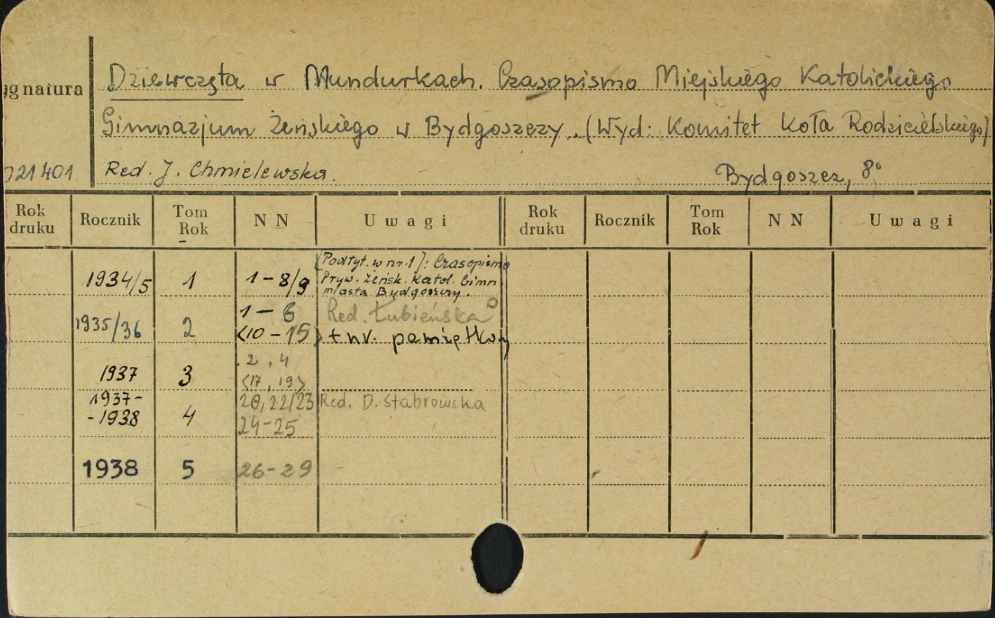 Dziewczęta w Mundurkach. Czasopismo Miejskiego Katolickiego
ygnatura
Gimnazjum Żeńskiego w Bydgoszczy. (Wyd: Komitet Koła Rodzicielskiego)
021401 Red. J. Chmielewska. Bydgoszcz, 8°
Rok druku Rocznik Tom Rok NN Uwagi Rok druku Rocznik Tom Rok NN Uwagi
[Podtyt. w nr 1]: Czasopismo
1934/5 1 1-8/9 Pryw. Żeńsk. Katol. Gimn
miasta Bydgoszczy.
1935/36 2 1-6 Red. Łubieńska
<10-15> + nr. pamiątkowy
1937 3 2, 4
<17, 19>
1937- 20, 22/23 Red. D. Stabrowska
-1938 4 24-25
1938 5 26-29